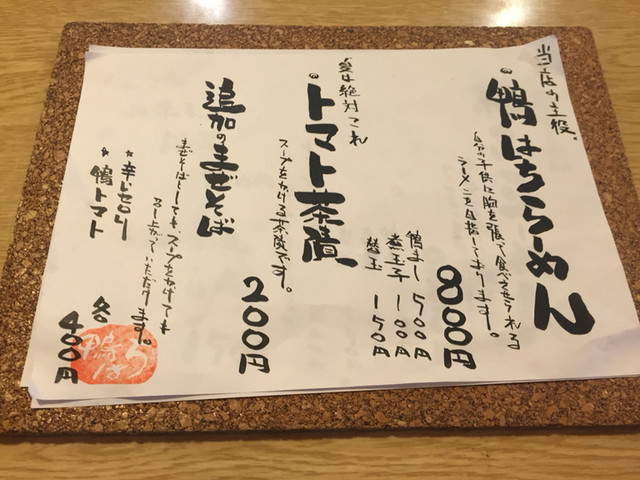 当店の主役。
鴨はちらーめん
自分の子供に胸を張って食べさせられる
ラーメンを目指しております。
800円
鴨まし 500円
煮玉子 100円
替玉 150円
〆は絶対これ
トマト茶漬
スープをかける茶漬です。
200円
追加のまぜそば
まぜそばとしても、スープをかけても
召し上がっていただけます。
*辛いセロリ
*鴨トマト
各400円
鴨はち